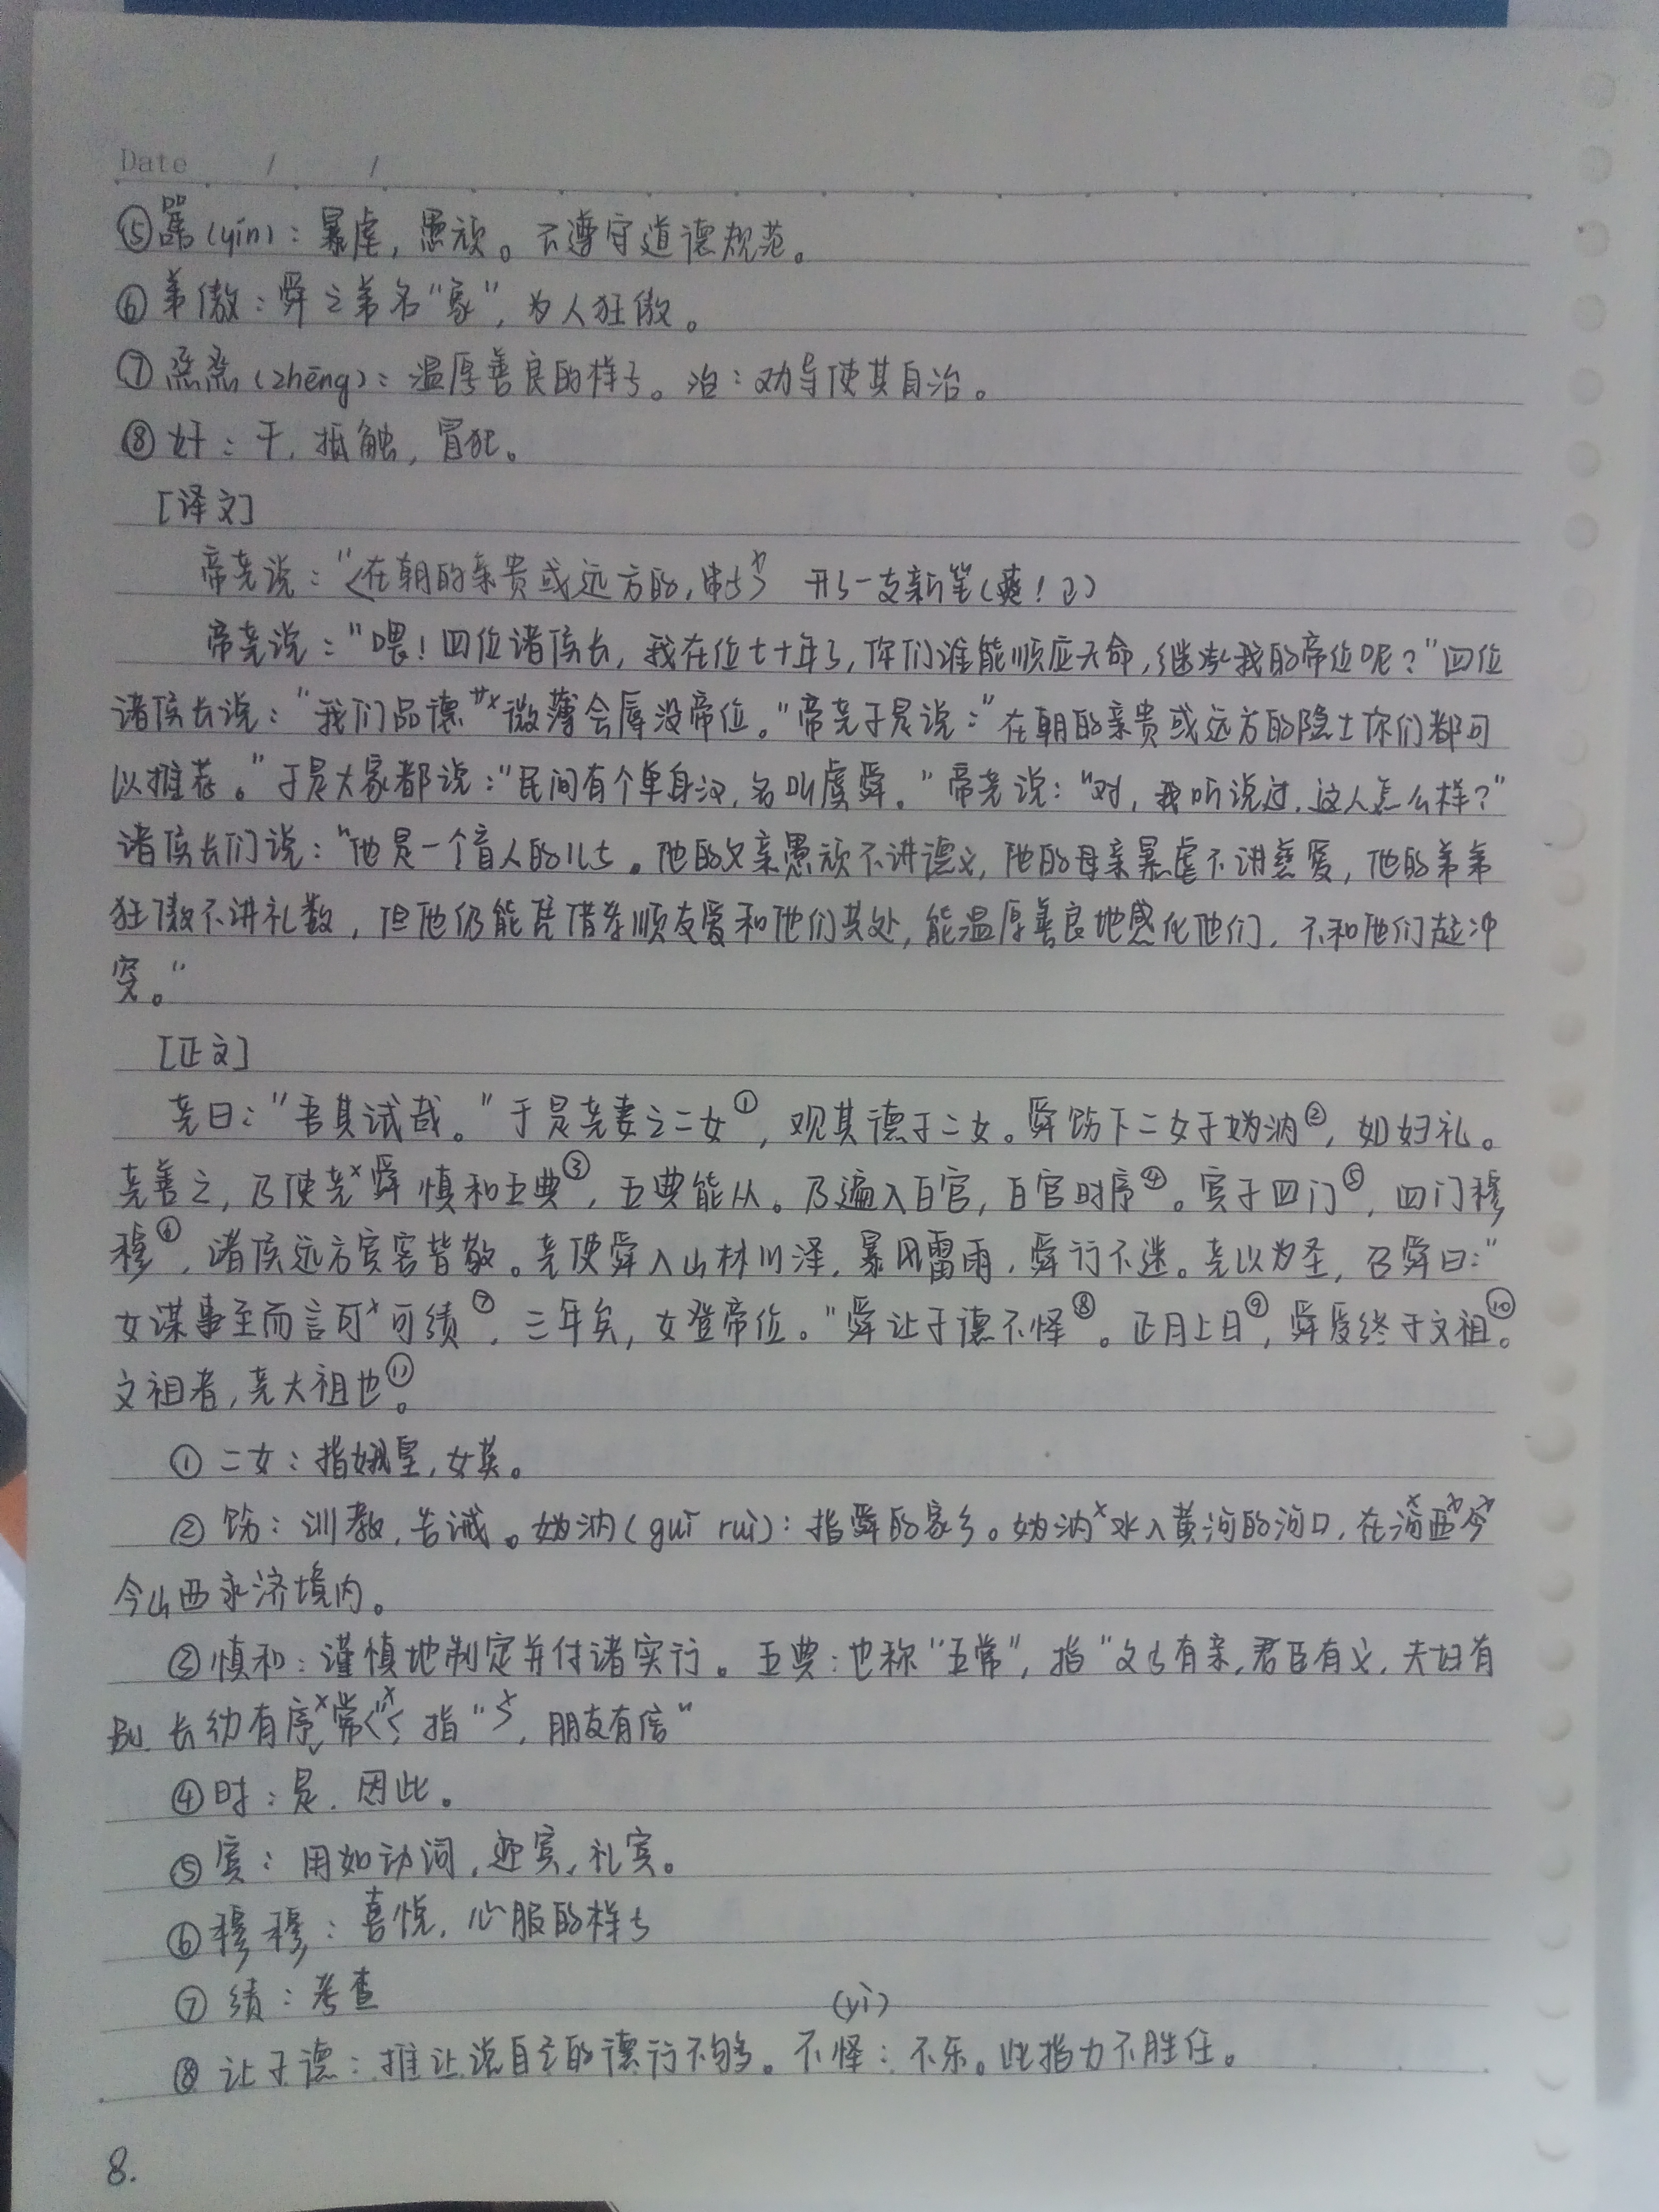 Date / /
⑤嚚(yín):暴虐,愚顽。不遵守道德规范。
⑥弟傲:舜之弟名“象”,为人狂傲。
⑦烝烝(zhēng):温厚善良的样子。治:劝导使其自治。
⑧奸:干,抵触,冒犯。
[译文]
帝尧说:“<在朝的亲贵或远方的, > 开了一支新笔(爽!)
帝尧说:“喂!四位诸侯长,我在位七十年了,你们谁能顺应天命,继承我的帝位呢?”四位
诸侯长说:“我们品德 微薄会辱没帝位。”帝尧于是说:“在朝的亲贵或远方的隐士你们都可
以推荐。”于是大家都说:“民间有个单身汉,名叫虞舜。”帝尧说:“对,我听说过,这人怎么样?”
诸侯长们说:“他是一个盲人的儿子。他的父亲愚顽不讲德义,他的母亲暴虐不讲慈爱,他的弟弟
狂傲不讲礼数,但他仍能凭借孝顺友爱和他们共处,能温厚善良地感化他们,不和他们起冲
突。”
[正文]
尧曰:“吾其试哉。”于是尧妻之二女①,观其德于二女。舜饬下二女于妫汭②,如妇礼。
尧善之,乃使尧×舜慎和五典③,五典能从。乃遍入百官,百官时序④。宾于四门⑤,四门穆
穆⑥,诸侯远方宾客皆敬。尧使舜入山林川泽,暴风雷雨,舜行不迷。尧以为圣,召舜曰:“
女谋事至而言可×可绩⑦,三年矣,女登帝位。”舜让于德不怿⑧。正月上日⑨,舜受终于文祖⑩。
文祖者,尧大祖也⑪。
①二女:指娥皇,女英。
②饬:训教,告诫。妫汭(guī ruì):指舜的家乡。妫汭×水入黄河的河口,在河×西×今×
今山西永济境内。
③慎和:谨慎地制定并付诸实行。五典:也称“五常”,指“父子有亲,君臣有义,夫妇有
别,长幼有序×常<“<×指“>×,朋友有信”
④时:是,因此。
⑤宾:用如动词,迎宾,礼宾。
⑥穆穆:喜悦,心服的样子
⑦绩:考查
(yì)
⑧让于德:推让说自己的德行不够。不怿:不乐。此指力不胜任。
8.